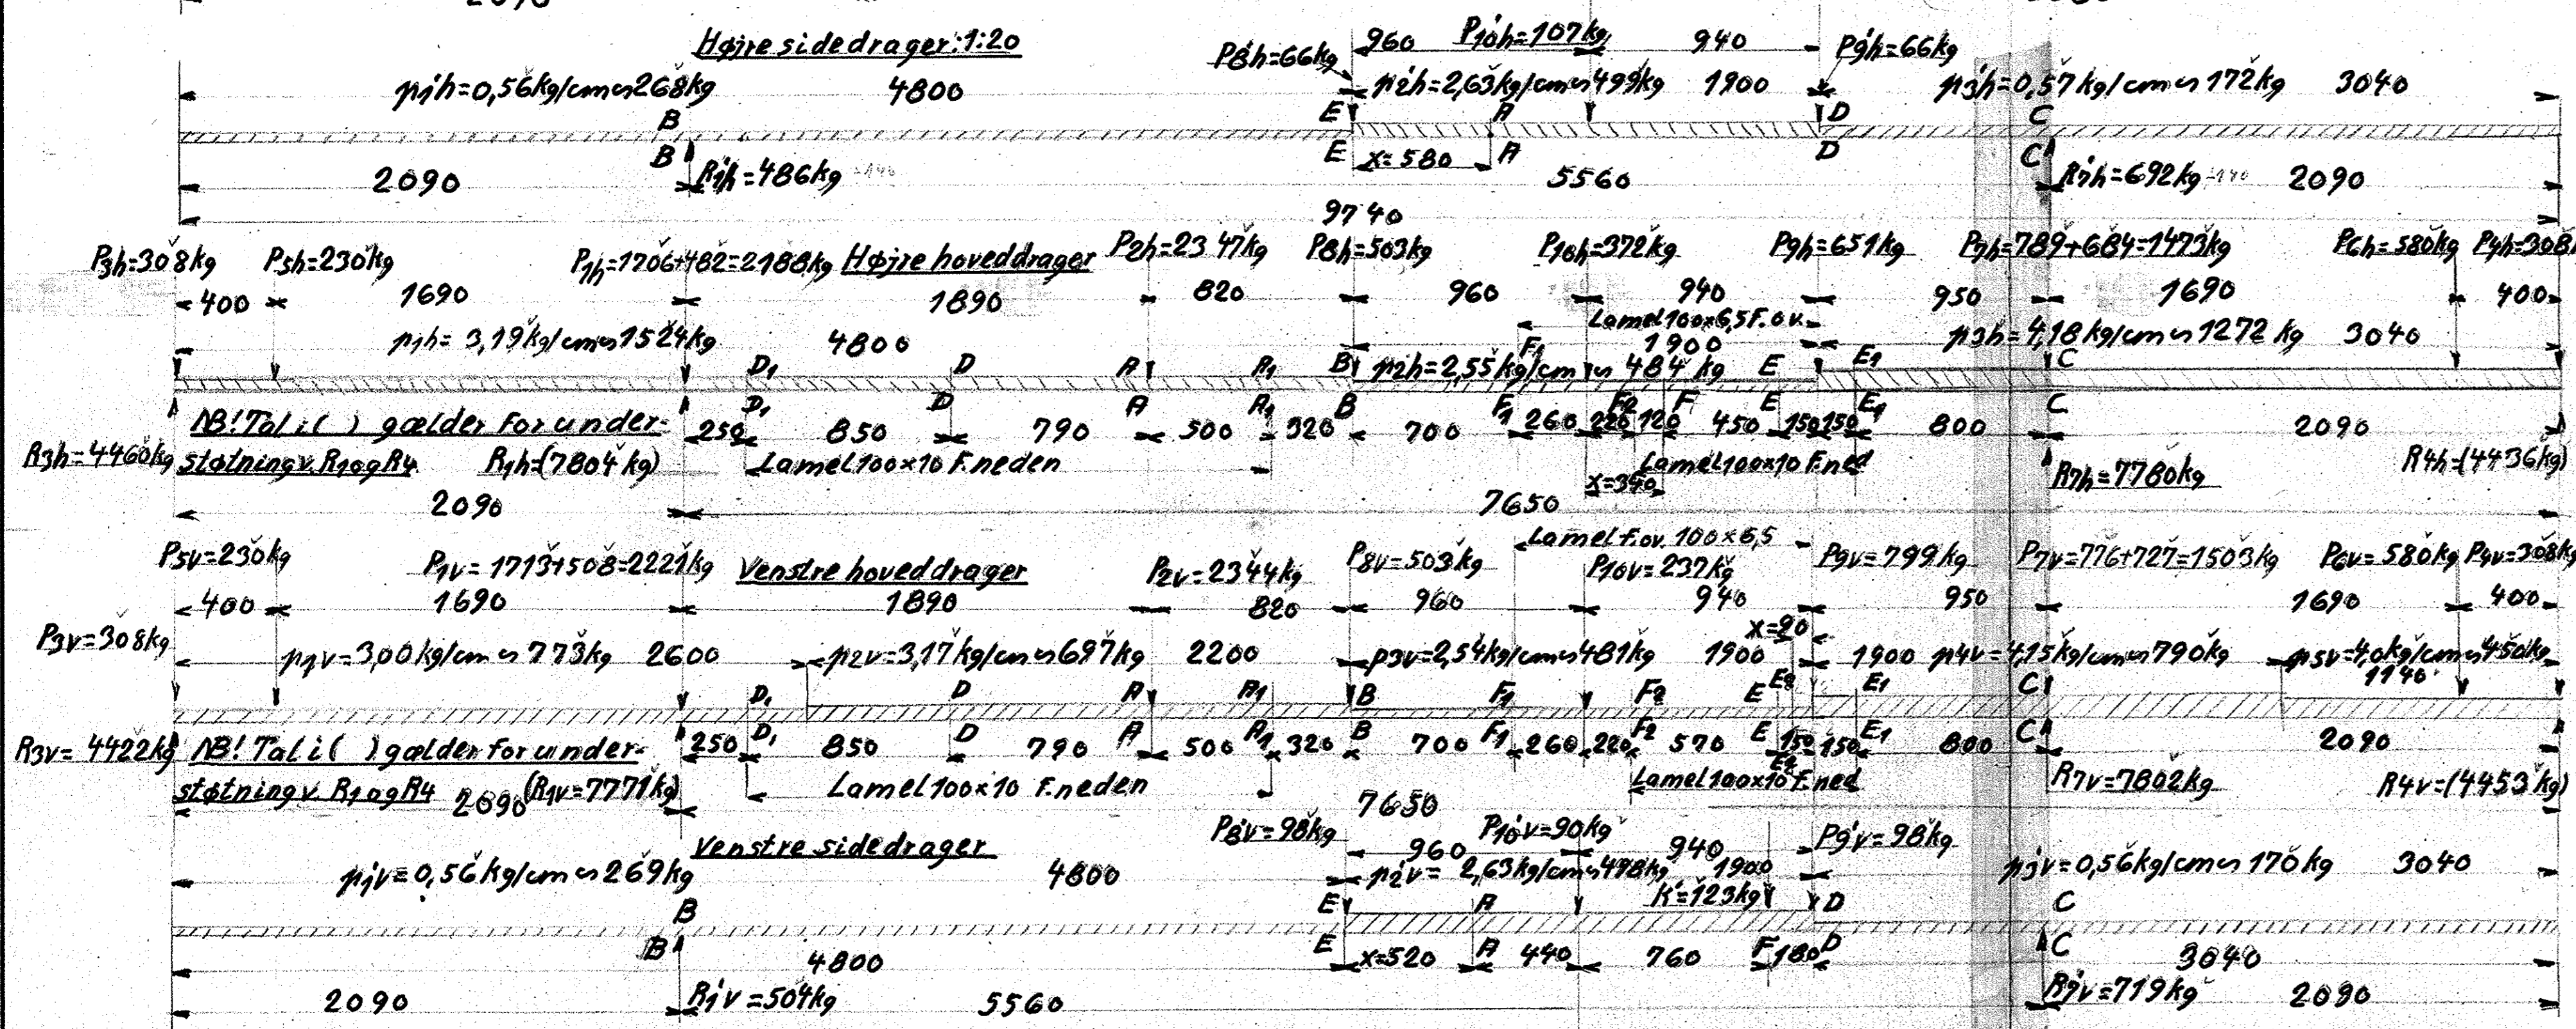 2090
Højre sidedrager: 1:20
P8'h=66kg 960 P10'h=107kg 940 P9'h=66kg
p1'h=0,56kg/cm∽268kg 4800 p2'h=2,63kg/cm∽499kg 1900 p3'h=0,57kg/cm∽172kg 3040
B E A D C
B E x=580 A D C
2090 R1'h=486kg 5560 R7'h=692kg 2090
9740
P3h=308kg P5h=230kg P1h=1706+482=2188kg Højre hoveddrager P2h=2347kg P8h=503kg P10h=372kg P9h=651kg P7h=789+684=1473kg P6h=580kg P4h=308
400 1690 1890 820 960 940 950 1690 400
Lamel 100×6,5 F.ov.
p1h=3,19kg/cm∽1524kg 4800 F1 1900 p3h=4,18kg/cm∽1272kg 3040
D1 D A A1 B p2h=2,55kg/cm∽484kg E E1 C
D1 D A A1 B F1 F2 F E E1 C
NB! Tal i ( ) gælder for under- 250 850 790 500 320 700 260 220 120 450 150 150 800 2090
R3h=4460kg støtning v. R1 og R4 R1h=(7804kg) Lamel 100×10 F.neden Lamel 100×10 F.ned R7h=7780kg R4h=(4436kg)
x=340
2090 7650
Lamel f.ov. 100×6,5
P5v=230kg P1v=1713+508=2221kg Venstre hoveddrager P2v=2344kg P8v=503kg P10v=237kg P9v=799kg P7v=776+727=1503kg P6v=580kg P4v=308kg
400 1690 1890 820 960 940 950 1690 400
x=90
P3v=308kg p1v=3,00kg/cm∽773kg 2600 p2v=3,17kg/cm∽697kg 2200 p3v=2,54kg/cm∽481kg 1900 1900 p4v=4,15kg/cm∽790kg p5v=4,0kg/cm∽450kg
1140
D1 D A A1 B F1 F2 E E2 E1 C
D1 D A A1 B F1 F2 E E2 E1 C
R3v=4422kg NB! Tal i ( ) gælder for under- 250 850 790 500 320 700 260 220 570 150 150 800 2090
støtning v. R1 og R4 2090 (R1v=7771kg) Lamel 100×10 F.neden Lamel 100×10 F.ned R7v=7802kg R4v=(4453kg)
7650
Venstre sidedrager P8'v=98kg 960 P10'v=90kg 940 P9'v=98kg
p1'v=0,56kg/cm∽269kg 4800 p2'v=2,63kg/cm∽498kg 1900 p3'v=0,56kg/cm∽170kg 3040
K'=123kg
B E A D C
B E x=520 A 440 760 F 180 D C
4800 3040
2090 R1'v=504kg 5560 R7'v=719kg 2090